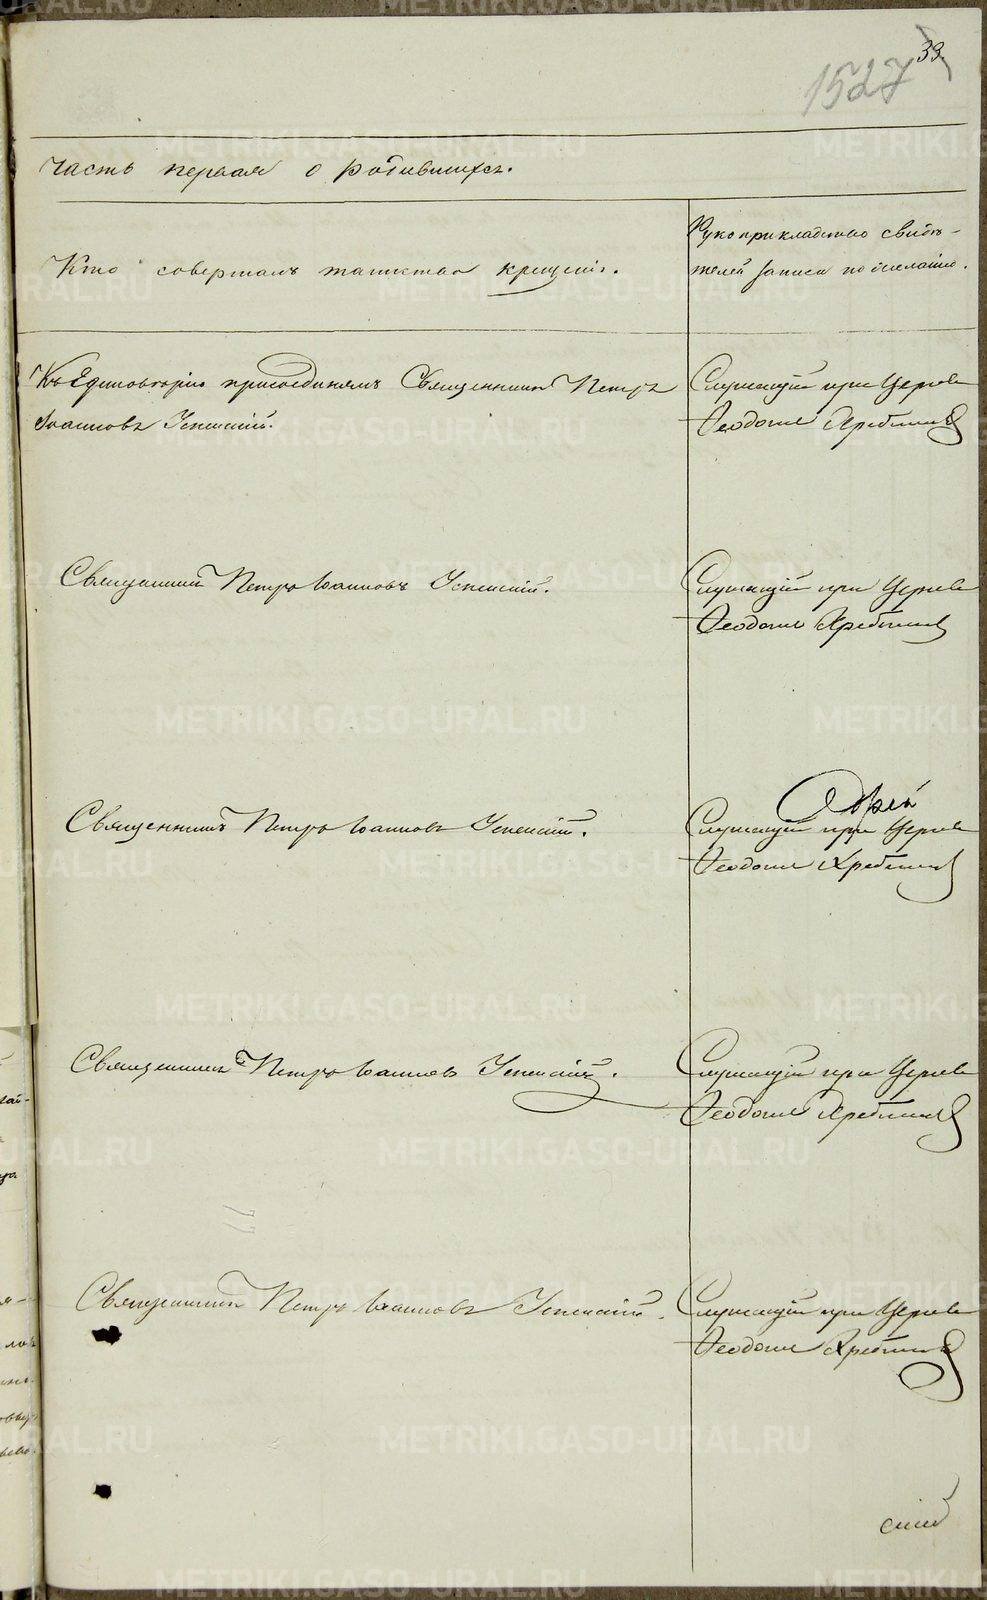 33.
1527
Часть первая о родившихся.
Кто совершалъ таинство крещенія.
Рукоприкладство свидѣ-
телей записи по желанію.
Къ Единовѣрію присоединялъ Священникъ Петръ
Іоанновъ Успенскій.
Служащій при Церкви
Ѳеодосій
Священникъ Петръ Іоанновъ Успенскій.
Служащій при Церкви
Ѳеодосій
Священникъ Петръ Іоанновъ Успенскій.
Служащій при Церкви
Ѳеодосій
Священникъ Петръ Іоанновъ Успенскій.
Служащій при Церкви
Ѳеодосій
Священникъ Петръ Іоанновъ Успенскій.
Служащій при Церкви
Ѳеодосій
METRIKI.GASO-URAL.RU